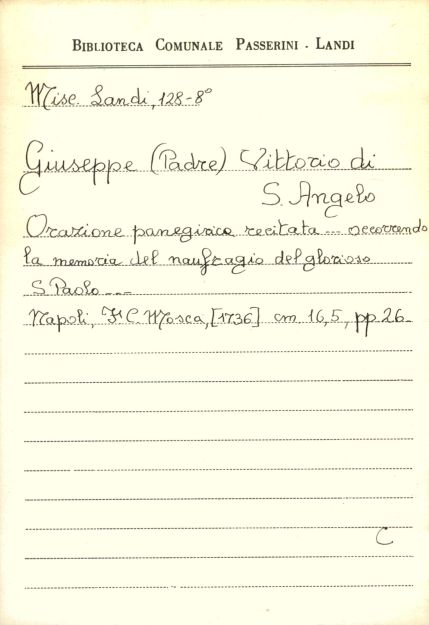 BIBLIOTECA COMUNALE PASSERINI - LANDI
Misc. Landi, 128-8°
Giuseppe (Padre) Vittorio di
S. Angelo
Orazione panegirica recitata ... occorrendo
la memoria del naufragio del glorioso
S. Paolo ...
Napoli, F. C. Mosca, [1736] cm 16,5, pp. 26.
C